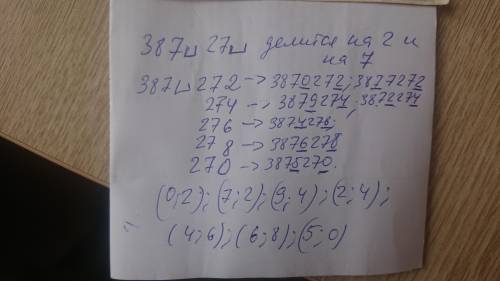 387⊔27⊔ делится на 2 и
на 7
387⊔272 → 3870272; 3877272
274 → 3879274; 3872274
276 → 3874276;
278 → 3876278
270 → 3875270.
(0;2); (7;2); (9;4); (2;4);
(4;6); (6;8); (5;0)